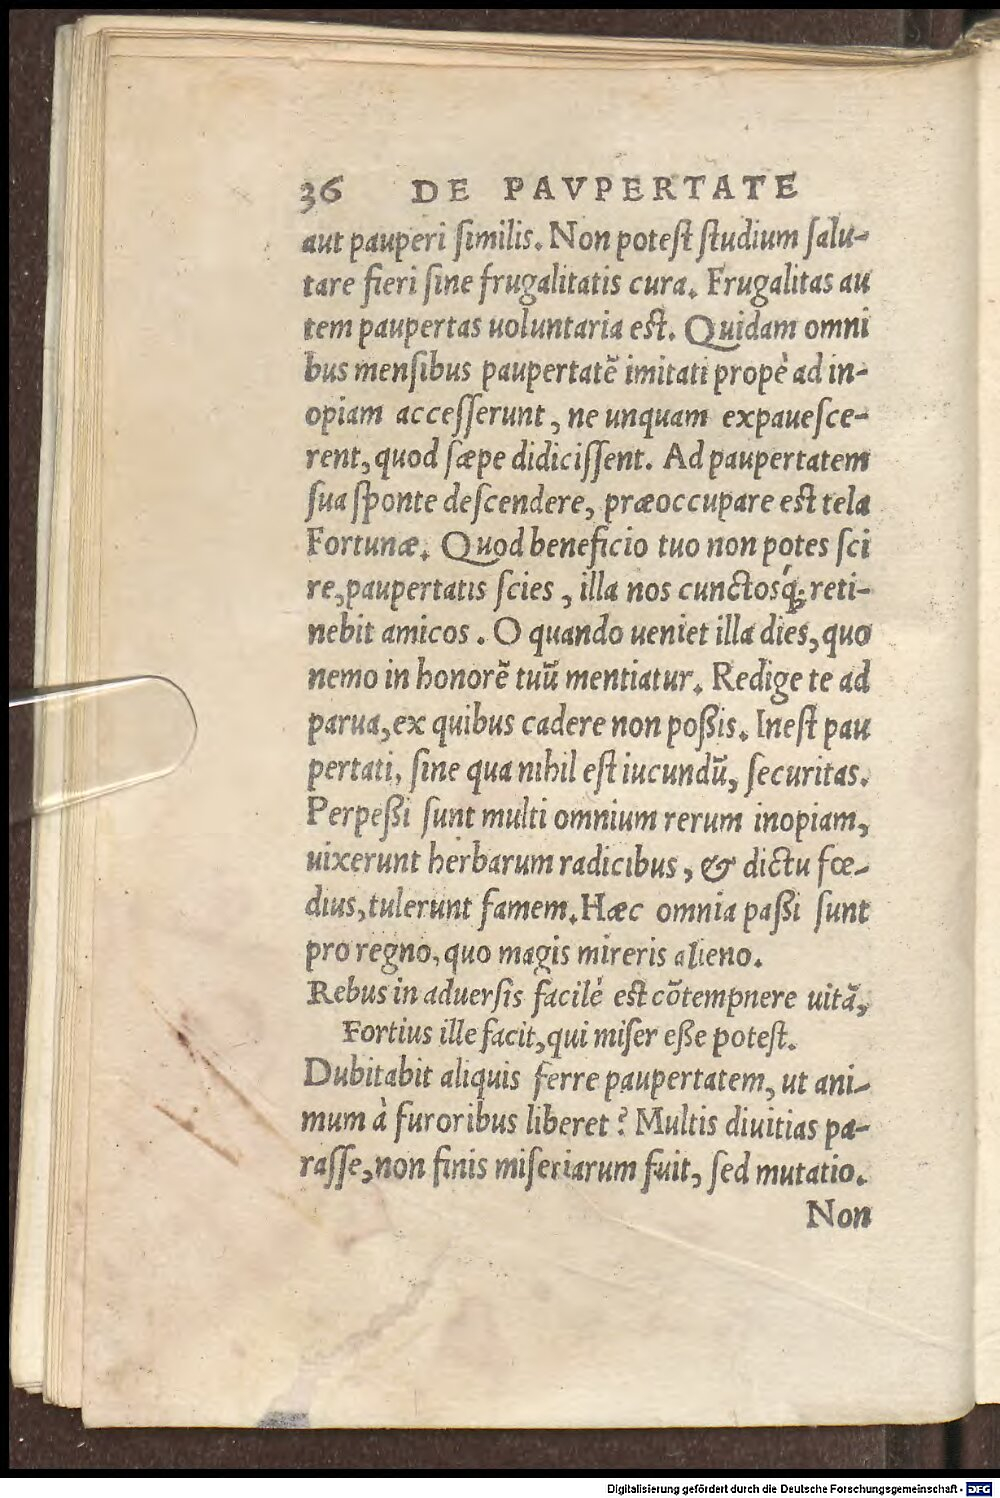 36 DE PAVPERTATE
aut pauperi ſimilis. Non poteſt ſtudium ſalu-
tare fieri ſine frugalitatis cura. Frugalitas au
tem paupertas uoluntaria eſt. Quidam omni
bus menſibus paupertatē imitati propè ad in-
opiam acceſſerunt, ne unquam expaueſce-
rent, quod ſæpe didiciſſent. Ad paupertatem
ſua ſponte deſcendere, præoccupare eſt tela
Fortunæ. Quod beneficio tuo non potes ſci
re, paupertatis ſcies, illa nos cunctosq́; reti-
nebit amicos. O quando ueniet illa dies, quo
nemo in honorē tuū mentiatur. Redige te ad
parua, ex quibus cadere non poßis. Ineſt pau
pertati, ſine qua nihil eſt iucundū, ſecuritas.
Perpeßi ſunt multi omnium rerum inopiam,
uixerunt herbarum radicibus, & dictu fœ-
dius, tulerunt famem. Hæc omnia paßi ſunt
pro regno, quo magis mireris alieno.
Rebus in aduerſis facilè eſt cōtempnere uitā,
Fortius ille facit, qui miſer eße poteſt.
Dubitabit aliquis ferre paupertatem, ut ani-
mum à furoribus liberet? Multis diuitias pa-
raſſe, non finis miſeriarum fuit, ſed mutatio.
Non
Digitalisierung gefördert durch die Deutsche Forschungsgemeinschaft - DFG